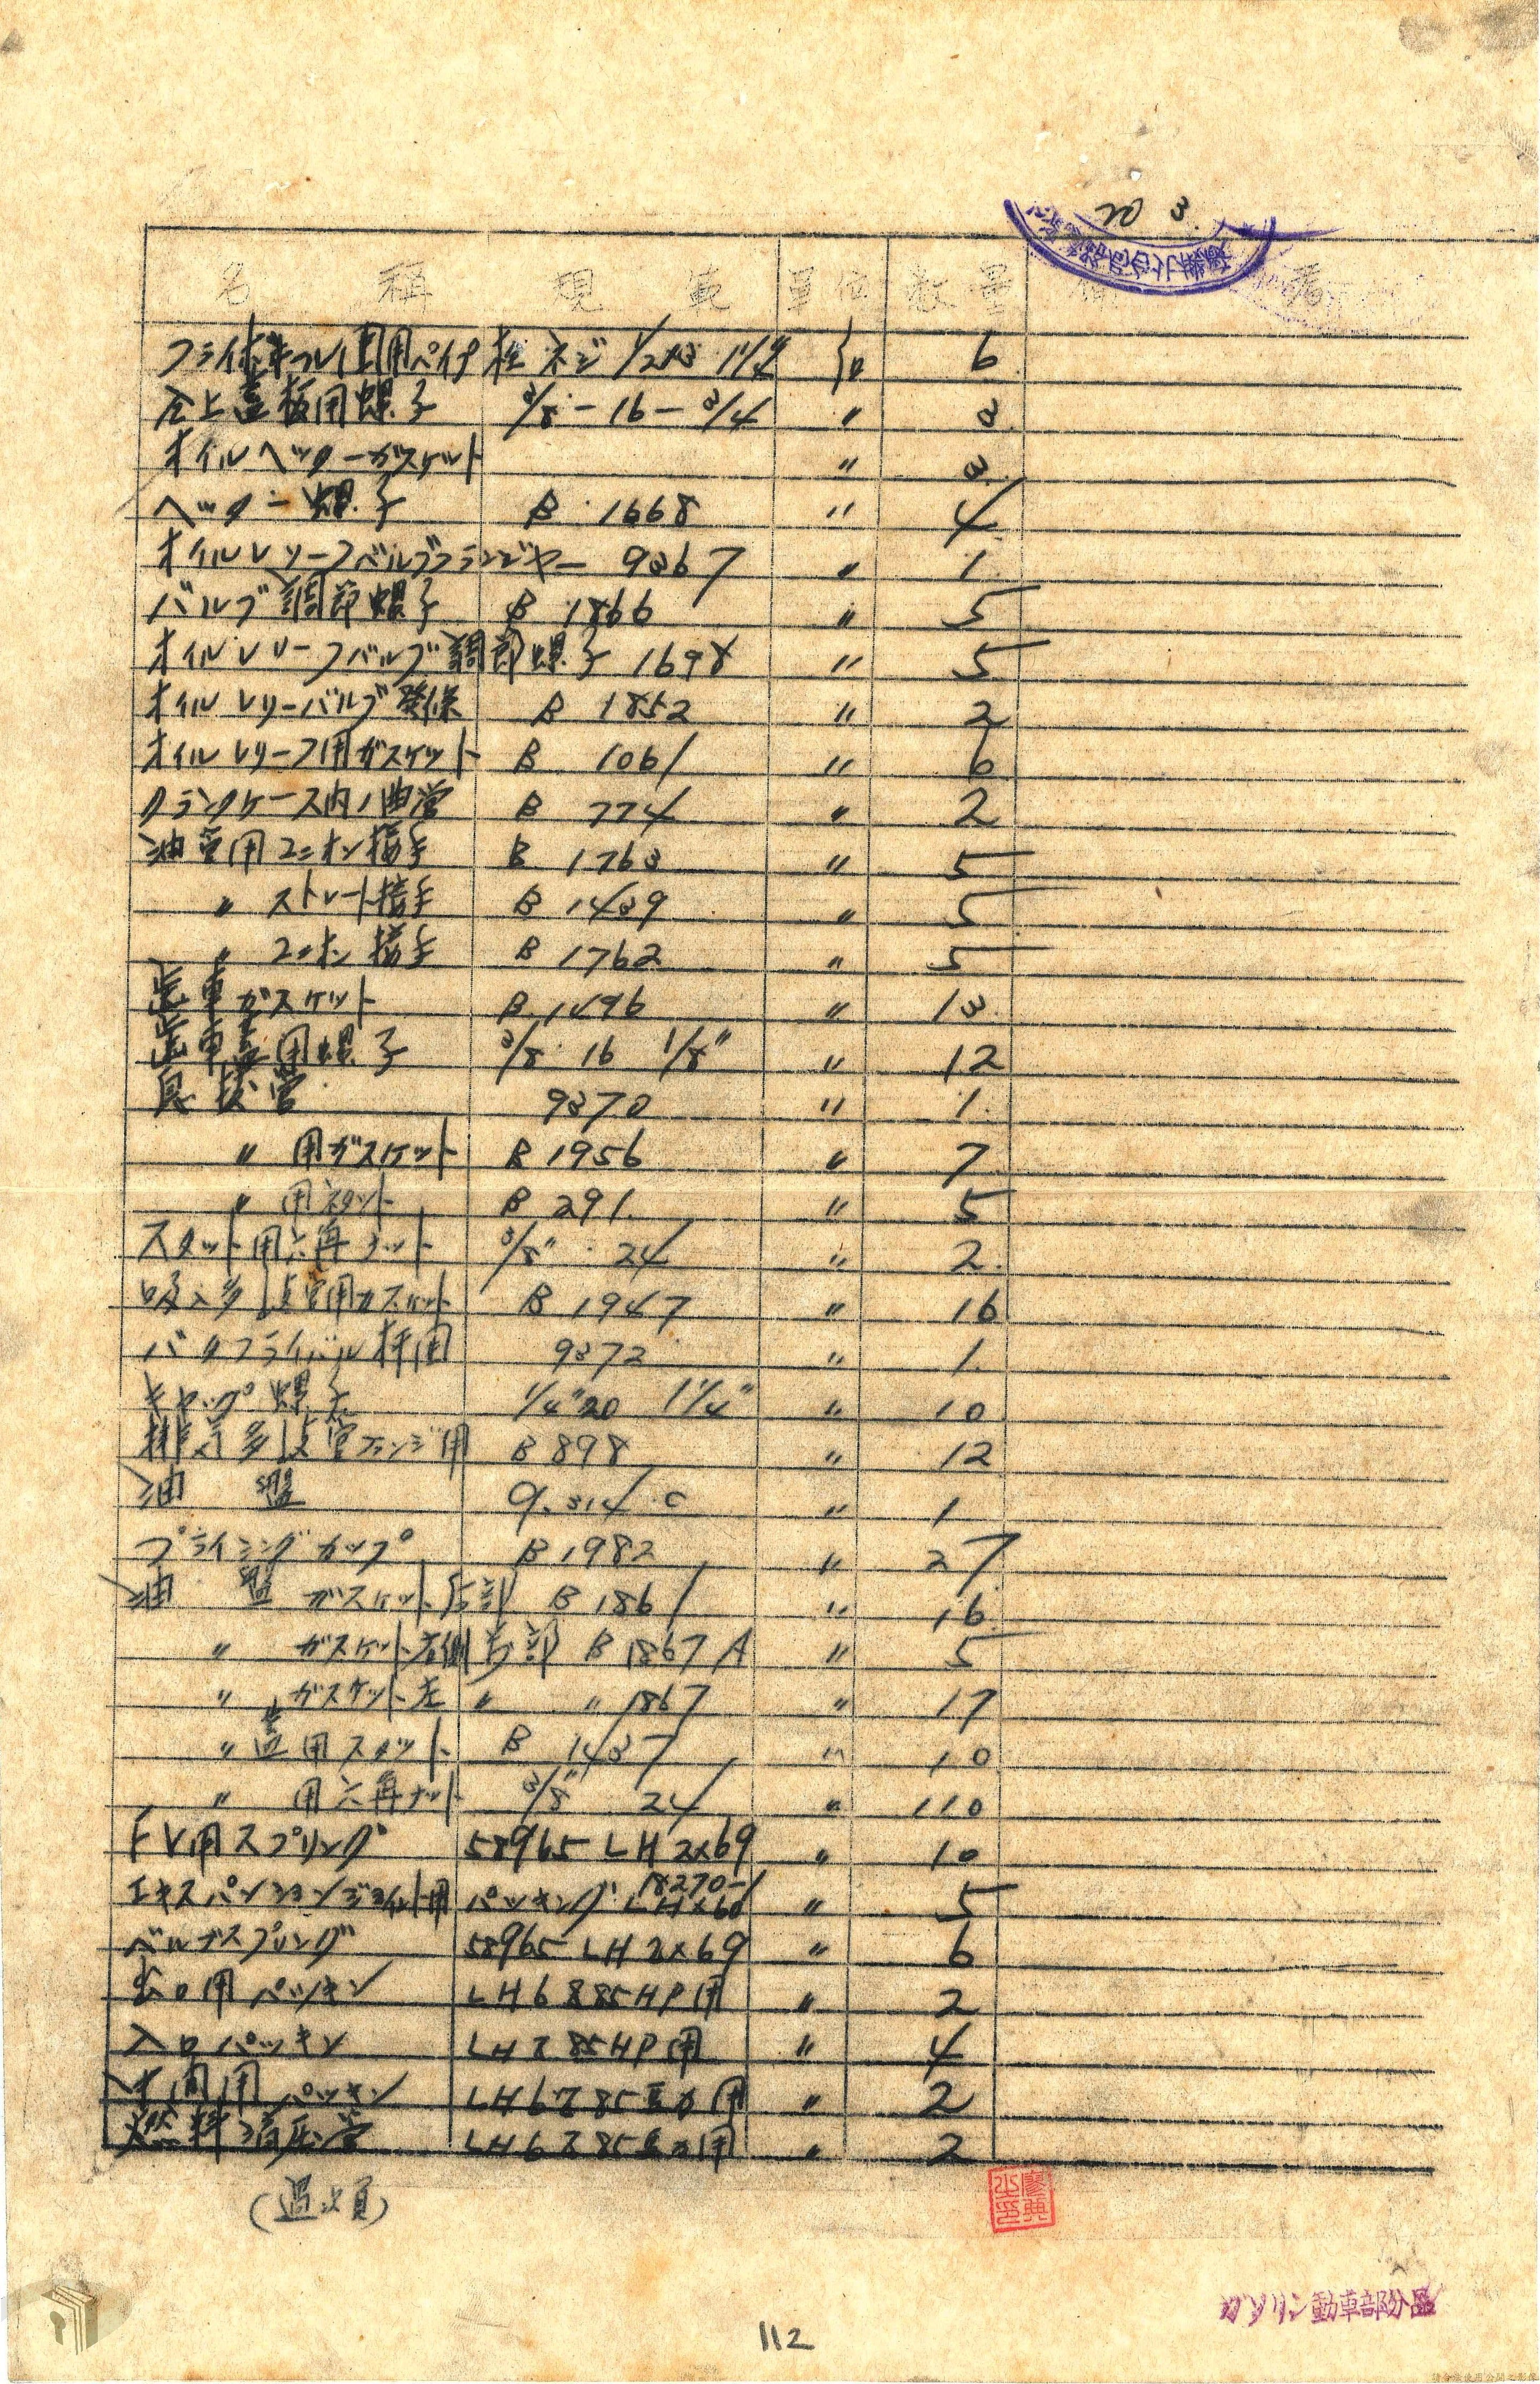 20 3.
名 稱 規 範 單位 数量 備 考
フライホイール 用パイプ 栓 ネジ 1/2 〃 6
上蓋板用螺子 3/8 - 16 - 3/4 〃 3
オイルヘッターガスケット 〃 3
ヘッター螺子 B 1668 〃 4
オイルレリーフバルブプランジヤー 9367 〃 1
バルブ調節螺子 B 1866 〃 5
オイルレリーフバルブ調節螺子 1698 〃 5
オイルレリーバルブ発條 B 1852 〃 2
オイルレリーフ用ガスケット B 1061 〃 6
クランクケース内ノ曲管 B 774 〃 2
油管用ユニオン接手 B 1763 〃 5
〃 ストレート接手 B 1439 〃 5
〃 ユニオン接手 B 1762 〃 5
歯車ガスケット B 1496 〃 13
歯車蓋用螺子 3/8 16 1/8" 〃 12
息抜管 9370 〃 1
〃 用ガスケット B 1956 〃 7
〃 用 B 291 〃 5
スタット用六角ナット 3/8" 24 〃 2
吸入多岐管用ガスケット B 1947 〃 16
バックフライバル 用 9372 〃 1
キャップ螺子 1/4" 20 1 1/4" 〃 10
排気多岐管フランジ用 B 898 〃 12
油 盤 9.314 C 〃 1
プライミングカップ B 1982 〃 27
油 盤 ガスケット后部 B 1861 〃 16
〃 ガスケット右側 部 B 1867 A 〃 5
〃 ガスケット左 〃 〃 1867 〃 17
〃 蓋用スタット B 1437 〃 10
〃 用六角ナット 3/8" 24 〃 110
FV用スプリング 58965 LH 2×69 〃 10
エキスパンションジョイント用 パッキング 18270-1 LH×60 〃 5
ベルブスプリング 58965 LH 2×69 〃 6
出口用パッキン LH6 Z85HP用 〃 2
入口パッキン LHZ 85HP用 〃 4
中間用パッキン LH6Z85馬力用 〃 2
燃料 管 LH6Z85馬力用 〃 2
(過次頁)
ガソリン動車部分品
112